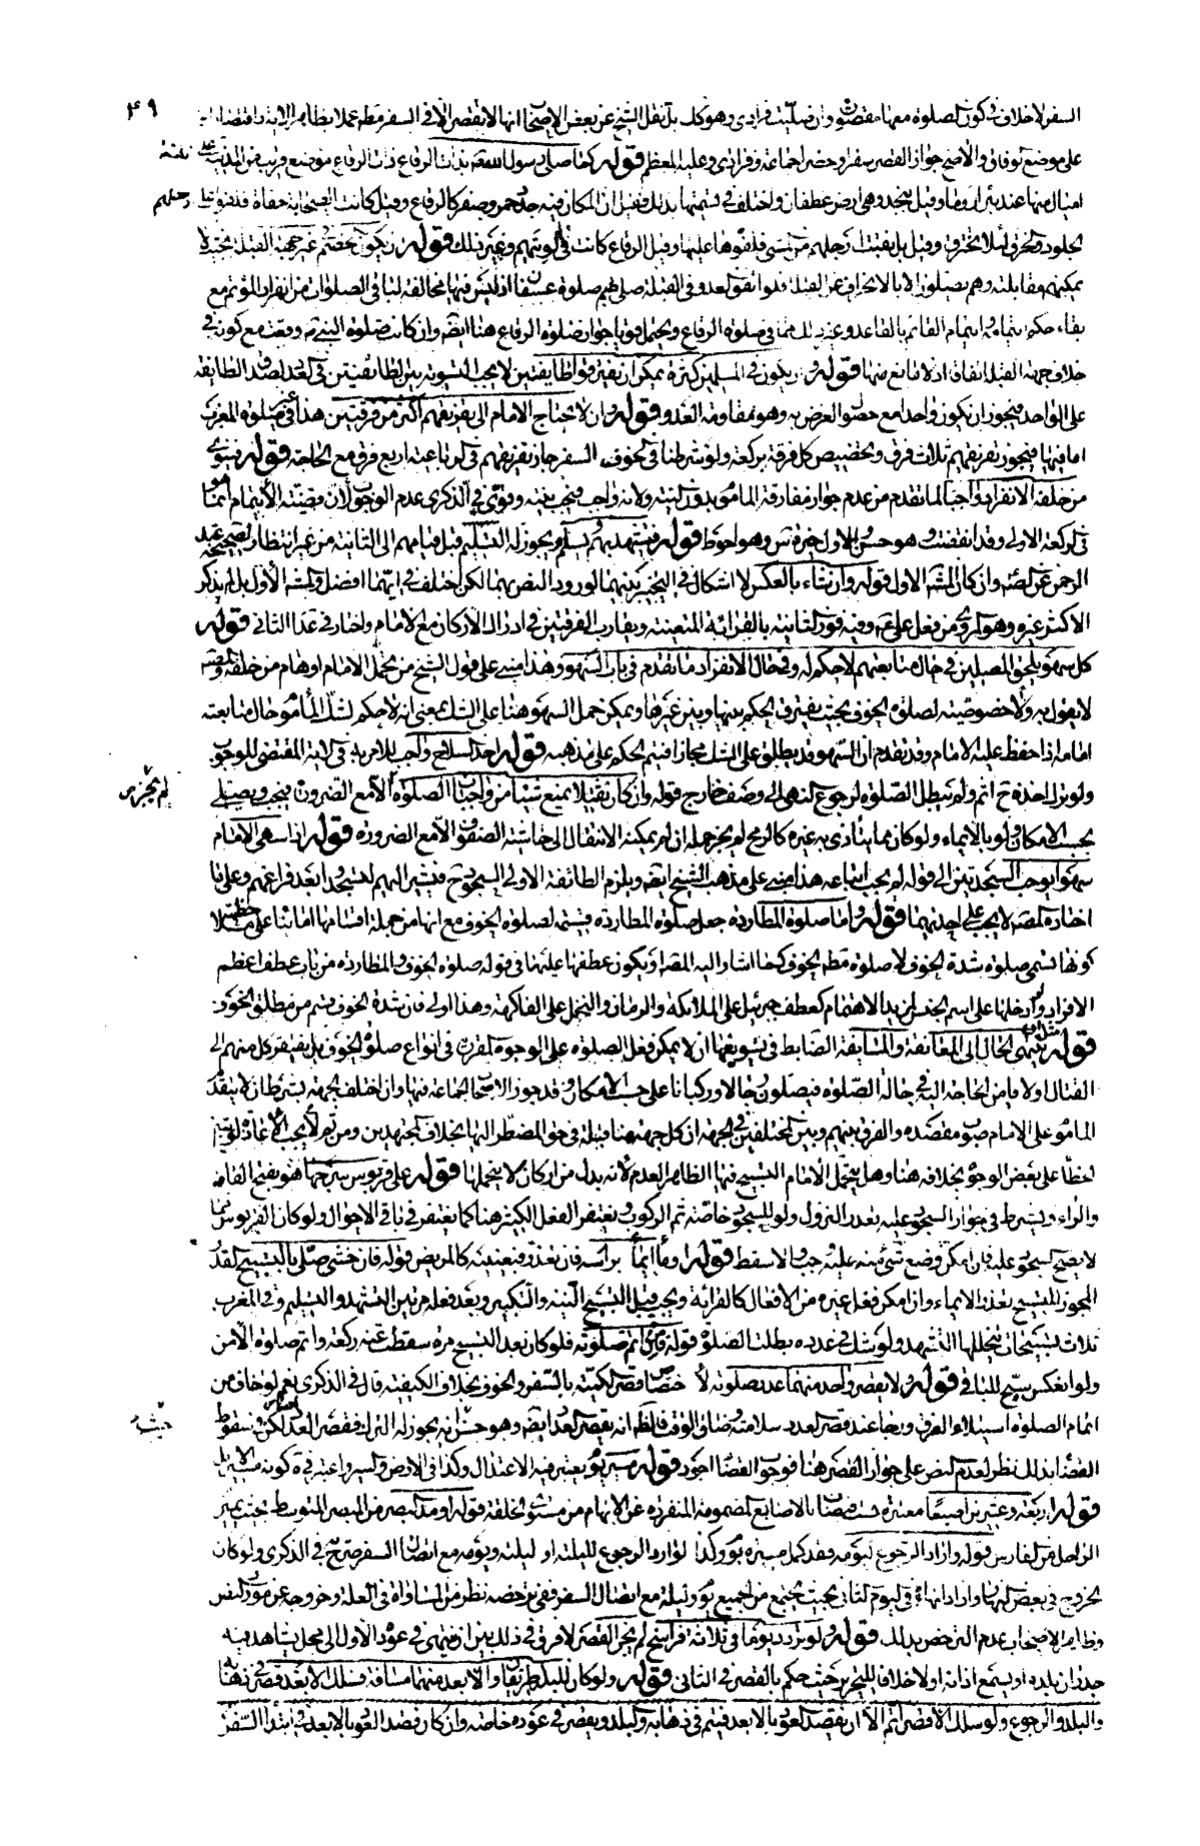 ٤٩
السفر لا خلاف في كون الصلوة معها مقصورة وان صليت فرادى وهو كك بل نقل الشيخ عن بعض الاصحاب انها لا تقصر الا في السفر عملا بظاهر الاية واقتصارا
على موضع الوفاق والاصح جواز القصر سفرا وحضرا جماعة وفرادى وعليه المعظم قوله كما صلى رسول الله بذات الرقاع ذات الرقاع موضع قريب من المدينة على ثلثة
اميال منها عند بئر اروما وقيل بنجد وهي ارض غطفان واختلف في تسميتها بذلك فقيل ان المكان فيه جدد حمر وصفر كالرقاع وقيل كانت الصحابة حفاة فلفوا على ارجلهم
الجلود والخرق لئلا تحترق وقيل بل نقبت ارجلهم من المشي فلفوها عليها وقيل الرقاع كانت في الويتهم وغير ذلك قوله ان يكون الخصم في غير جهة القبلة بحيث لا
يمكنهم مقابلته وهم يصلون الا بالانحراف عن القبلة فلو اتفق العدو في القبلة صلى بهم صلوة عسفان اذ ليس فيها مخالفة لباقي الصلوات من انفراد المؤتم مع
بقاء حكم ايتمامه وايتمام القائم بالقاعد وغير ذلك مما في صلوة الرقاع ويحتمل قويا جواز صلوة الرقاع هنا ايضا وان كانت صلوة النبي وقعت مع كونه في
خلاف جهة القبلة اتفاقا اذ لا مانع منها قوله وان يكون في المسلمين كثرة يمكن ان يفترقوا طايفتين لا يجب التسوية بين الطائفتين في العدد لصدق الطائفة
على الواحد فيجوز ان يكون واحدا مع حصول الغرض به وهو مقاومة العدو قوله وان لا يحتاج الامام الى تفريقهم اكثر من فرقتين هذا في غير صلوة المغرب
اما فيها فيجوز تفريقهم ثلاث فرق وتخصيص كل فرقة بركعة ولو شرطنا في الخوف السفر جاز تفريقهم في الرباعية اربع فرق مع الحاجة قوله فينوي
من خلفه الانفراد واجبا لما تقدم من عدم جواز مفارقة الماموم بدون النية ولانه واجب فتجب نيته وقوى في الذكرى عدم الوجوب لان قضية الايتمام انما هو
في الركعة الاولى وقد انقضت وهو حسن والاول خيرة س وهو احوط قوله فيتشهد بهم ويسلم ويجوز له التسليم قبل قيامهم الى الثانية من غير انتظار لصحيحة عبد
الرحمن عن الص وان كان المشهور الاول قوله وان شاء بالعكس لا اشكال في التخيير بينهما لورود النص بهما لكن اختلف في ايتهما افضل والمشهور الاول بل لم يذكر
الاكثر غيره وهو المروي من فعل علي وفيه فوز الثانية بالقراءة المتعينة ويقارب الفرقتين في ادراك الاركان مع الامام واختار في عدا الثاني قوله
كل سهو يلحق المصلين في حال متابعتهم لا حكم له وفي حال الانفراد ما تقدم في باب السهو وهذا مبني على قول الشيخ من تحمل الامام اوهام من خلفه والمص
لا يقول به ولا خصوصية لصلوة الخوف بحيث يفترق الحكم بينها وبين غيرها ويمكن حمل السهو هنا على الشك بمعنى انه لا حكم لشك الماموم حال متابعته
امامه اذا حفظ عليه الامام وقد تقدم ان السهو قد يطلق على الشك مجازا فيتم الحكم على مذهبه قوله اخذ السلاح واجب للامر به في الاية المقتضي للوجوب
ولو ترك اخذه ح اثم ولم تبطل الصلوة لرجوع النهي الى وصف خارج قوله وان كان ثقيلا يمنع شيئا من واجبات الصلوة لم يجز الا مع الضرورة فيجب ويصلى
بحسب الامكان ولو بالايماء ولو كان مما يتأذى به غيره كالرمح لم يجز حمله ان لم يمكنه الانتقال الى حاشية الصفوف الا مع الضرورة قوله اذا سهى الامام
سهوا يوجب السجدتين الى قوله لم يجب اتباعه هذا مبني على مذهب الشيخ ايضا ويلزم الطائفة الاولى السجود ح فيشير اليهم ليسجدوا بعد فراغهم وعلى ما
اختاره المص لا يجب على احديهما قوله واما صلوة المطاردة جعل صلوة المطاردة قسيمة لصلوة الخوف مع انها من جملة اقسامها اما بناء على ملاحظة
كونها تسمى صلوة شدة الخوف لا صلوة مطلق الخوف كما اشار اليه المص او يكون عطفها عليها في قوله صلوة الخوف والمطاردة من باب عطف اعظم
الافراد وادخلها على اسم الجنس لمزيد الاهتمام كعطف جبرئيل على الملائكة والرمان والنخل على الفاكهة وهذا اولى فان شدة الخوف قسم من مطلق الخوف
قوله مثل ان ينتهي الحال الى المعانقة والمسايفة الضابط في تسويغها ان لا يمكن فعل الصلوة على الوجوه المقررة في انواع صلوة الخوف بل يفتقر كل منهم الى
القتال اولا يامن الحاجة اليه في حالة الصلوة فيصلون رجالا وركبانا على حسب الامكان وقد جوز الاصحاب الجماعة فيها وان اختلف الجهة بشرط ان لا يتقدم
الماموم على الامام صوب مقصده والفرق بينهم وبين المختلفين في الجهة ان كل جهة هنا قبلة في حق المضطر اليها بخلاف المجتهدين ومن ثم لا يجب الاعادة لو تبين
الخطأ على بعض الوجوه بخلافه هنا وهل يتحمل الامام التسبيح فيها الظاهر العدم لانه بدل من اركان لا يتحملها قوله على قربوس سرجها هو بفتح القاف
والراء ويشترط في جواز السجود عليه تعذر النزول ولو للسجود خاصة ثم الركوب ويغتفر الفعل الكثير هنا كما يغتفر في باقي الاحوال ولو كان القربوس مما
لا يصح السجود عليه فان امكن وضع شيء منه عليه وجب والا سقط قوله اومأ ايماء براسه فان تعذر فبعينيه كالمريض قوله فان خشي صلى بالتسبيح لقد
المجوز للتسبيح تعذر الايماء وان امكن فعل غيره من الافعال كالقراءة ويجب قبل التسبيح النية والتكبير وبعد فعله مرتين التشهد والتسليم وفي المغرب
ثلاث تسبيحات يتخللها التشهد ولو شك في عدده بطلت الصلوة قوله فان امن اتم صلوته فلو كان بعد التسبيح مرة سقطت عنه ركعة واتم صلوة الامن
ولو انعكس سبح للباقي قوله ولا يقصر واحد منهما عدد صلوته لا ختصاص قصر الكمية بالسفر والخوف بخلاف الكيفية قال في الذكرى نعم لو خاف من
اتمام الصلوة استيلاء الغرق ورجا عند قصر العدد سلامته وضاق الوقت فالظ انه يقصر العدد ايضا وهو حسن حيث انه يجوز له الترك فقصر العدد اولى لكن في سقوط
القضاء بذلك نظر لعدم النص على جواز القصر هنا فوجوب القضاء اجود قوله مسير يوم يعتبر فيه الاعتدال وكذا في الارض والسير واعتبر في كونه مسير الابل
قوله اربعة وعشرين اصبعا معتبرة حيث بالاصابع المضمومة المنفردة عن الابهام من مستوى الخلقة قوله او مد البصر من المبصر المتوسط بحيث يميز
الراجل من الفارس قوله واراد الرجوع ليومه فقد كمل مسيره يوم وكذا لو اراد الرجوع لليلته او ليلته ويومه مع اتصال السفر صرح في الذكرى ولو كان
الخروج في بعض النهار واراد انهاءه في اليوم الثاني بحيث يجتمع من الجميع يوم وليلة مع اتصال السفر ففي ترخصه نظر من المساواة في العلة وخروجه عن مورد النص
وظاهر الاصحاب عدم الترخص بذلك قوله ولو تردد يوما في ثلاثة فراسخ لم يجز القصر لا فرق في ذلك بين ان ينتهي في عوده الاول الى محل يشاهد فيه
جدران بلده او يسمع اذانه او لا خلافا للتحرير حيث حكم بالقصر في الثاني قوله ولو كان للبلد طريقان والابعد منهما مسافة فسلك الابعد قصر في ذهابه
والبلد والرجوع ولو سلك الاقصر اتم الا ان يقصد العود بالابعد فيتم في ذهابه والبلد ويقصر في عوده خاصة وان كان قصد العود بالابعد في ابتداء السفر